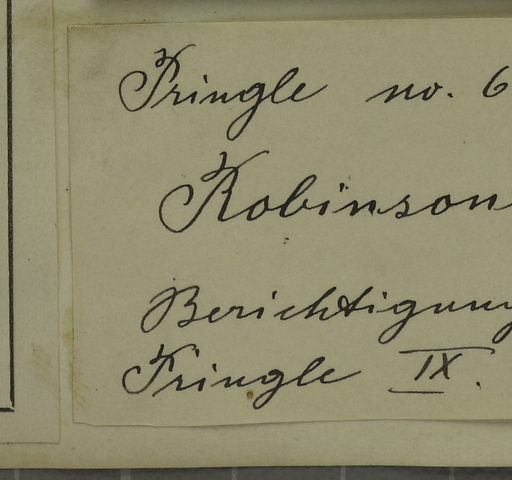 Pringle no. 6
Robinson
Berichtigung
Pringle IX.